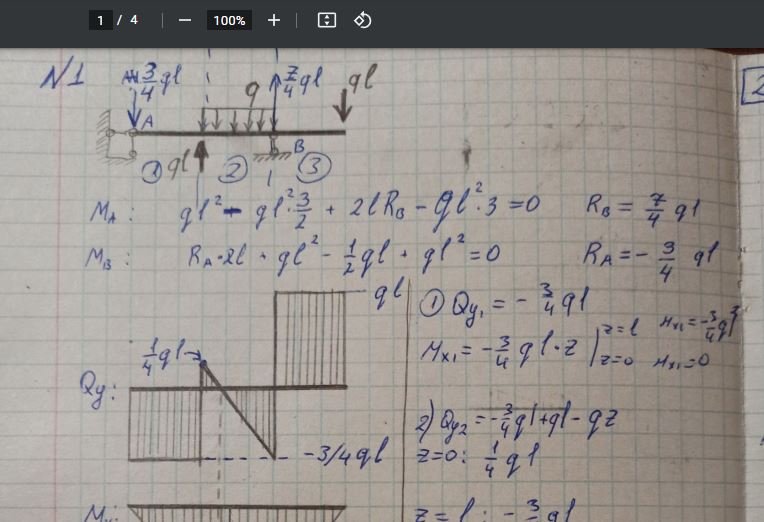 1 / 4 100%
N1 3/4 ql q 7/4 ql ql
A B
① ql ② ③
M_A: ql² - ql²·3/2 + 2lR_B - ql²·3 = 0 R_B = 7/4 ql
M_B: R_A·2l + ql² - 1/2 ql + ql² = 0 R_A = - 3/4 ql
ql
① Qy₁ = - 3/4 ql
1/4 ql
Mx₁ = - 3/4 ql·z | z=l Mx₁ = -3/4 ql²
z=0 Mx₁ = 0
Qy:
2) Qy₂ = -3/4 ql + ql - qz
-3/4 ql
z=0: 1/4 ql
z = l : - 3 ql
2